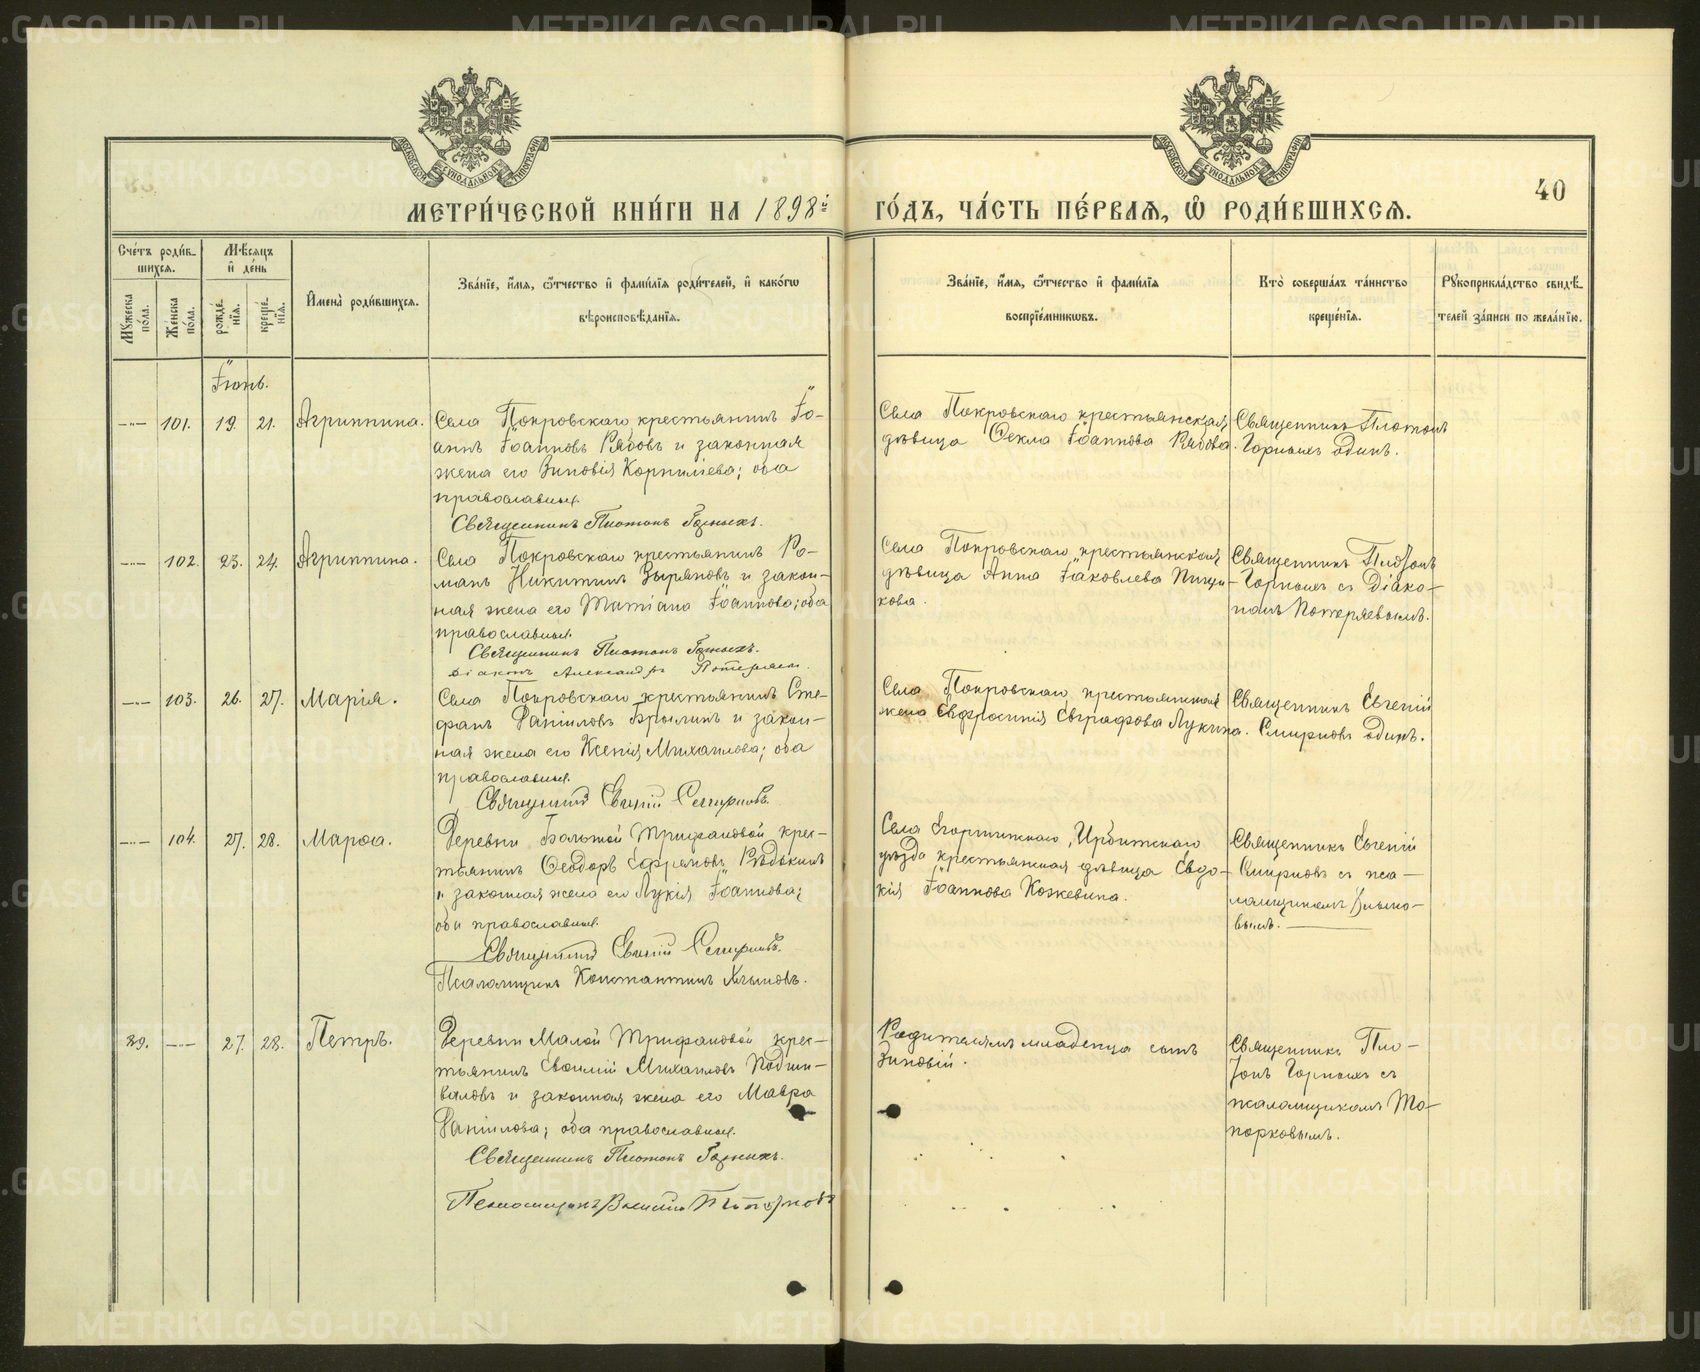 МЕТРИ́ЧЕСКОЙ КНИ́ГИ НА 1898й ГО́ДЪ, ЧА́СТЬ ПЕ́РВАЯ, Ѡ РОДИ́ВШИХСЯ.
40
МОСКОВСКОЙ СУНОДАЛЬНОЙ ТИПОГРАФІИ
МОСКОВСКОЙ СУНОДАЛЬНОЙ ТИПОГРАФІИ
Сче́тъ роди́в-
шихся.
Мꙋ́жеска по́ла.
Же́нска по́ла.
Мѣ́сяцъ
и҆ де́нь
рожде́-
нїѧ.
креще́-
нїѧ.
И҆мена̀ роди́вшихся.
Зва́нїе, и҆́мѧ, ѻ҆́тчество и҆ фами́лїѧ роди́телей, и҆ како́гѡ
вѣроисповѣ́данїѧ.
Зва́нїе, и҆́мѧ, ѻ҆́тчество и҆ фами́лїѧ
воспрїе́мникѡвъ.
Кто̀ соверша́лъ та́инство
креще́нїѧ.
Рꙋкоприкла́дство свидѣ́-
телей за́писи по жела́нїю.
Іюнь.
101. 19. 21. Агриппина.
Села Покровскаго крестьянинъ Іо-
аннъ Іоанновъ Рябовъ и законная
жена его Зиновія Корниліева; оба
православные.
Священникъ Платонъ Горныхъ.
Села Покровскаго крестьянская
дѣвица Ѳекла Іоаннова Рябова.
Священникъ Платонъ
Горныхъ одинъ.
102. 23. 24. Агриппина.
Села Покровскаго крестьянинъ Ро-
манъ Никитинъ Зыряновъ и закон-
ная жена его Татіана Іоаннова; оба
православные.
Священникъ Платонъ Горныхъ.
Діаконъ Александръ Потеряевъ.
Села Покровскаго крестьянская
дѣвица Анна Іаковлева Пищи-
кова.
Священникъ Платонъ
Горныхъ съ Діако-
номъ Потеряевымъ.
103. 26. 27. Марія.
Села Покровскаго крестьянинъ Сте-
фанъ Даніиловъ Брылинъ и закон-
ная жена его Ксенія Михаилова; оба
православные.
Священникъ Евгеній Смирновъ.
Села Покровскаго крестьянская
жена Евфросинія Евграфова Лукина.
Священникъ Евгеній
Смирновъ одинъ.
104. 27. 28. Марѳа.
Деревни Большой Трифановой крес-
тьянинъ Ѳеодоръ Ефремовъ Рѣдькинъ
и законная жена его Лукія Іоаннова;
оба православные.
Священникъ Евгеній Смирновъ.
Псаломщикъ Константинъ
Села Егоршинскаго, Ирбитскаго
уѣзда крестьянская дѣвица Евдо-
кія Іоаннова Кожевина.
Священникъ Евгеній
Смирновъ съ пса-
ломщикомъ
вымъ.
89. 27. 28. Петръ.
Деревни Малой Трифановой крес-
тьянинъ Василій Михаиловъ Подши-
валовъ и законная жена его Мавра
Даніилова; оба православные.
Священникъ Платонъ Горныхъ.
Псаломщикъ Василій Топорковъ
Родителямъ младенца сынъ
Зиновій.
Священникъ Пла-
тонъ Горныхъ съ
псаломщикомъ То-
порковымъ.
METRIKI.GASO-URAL.RU